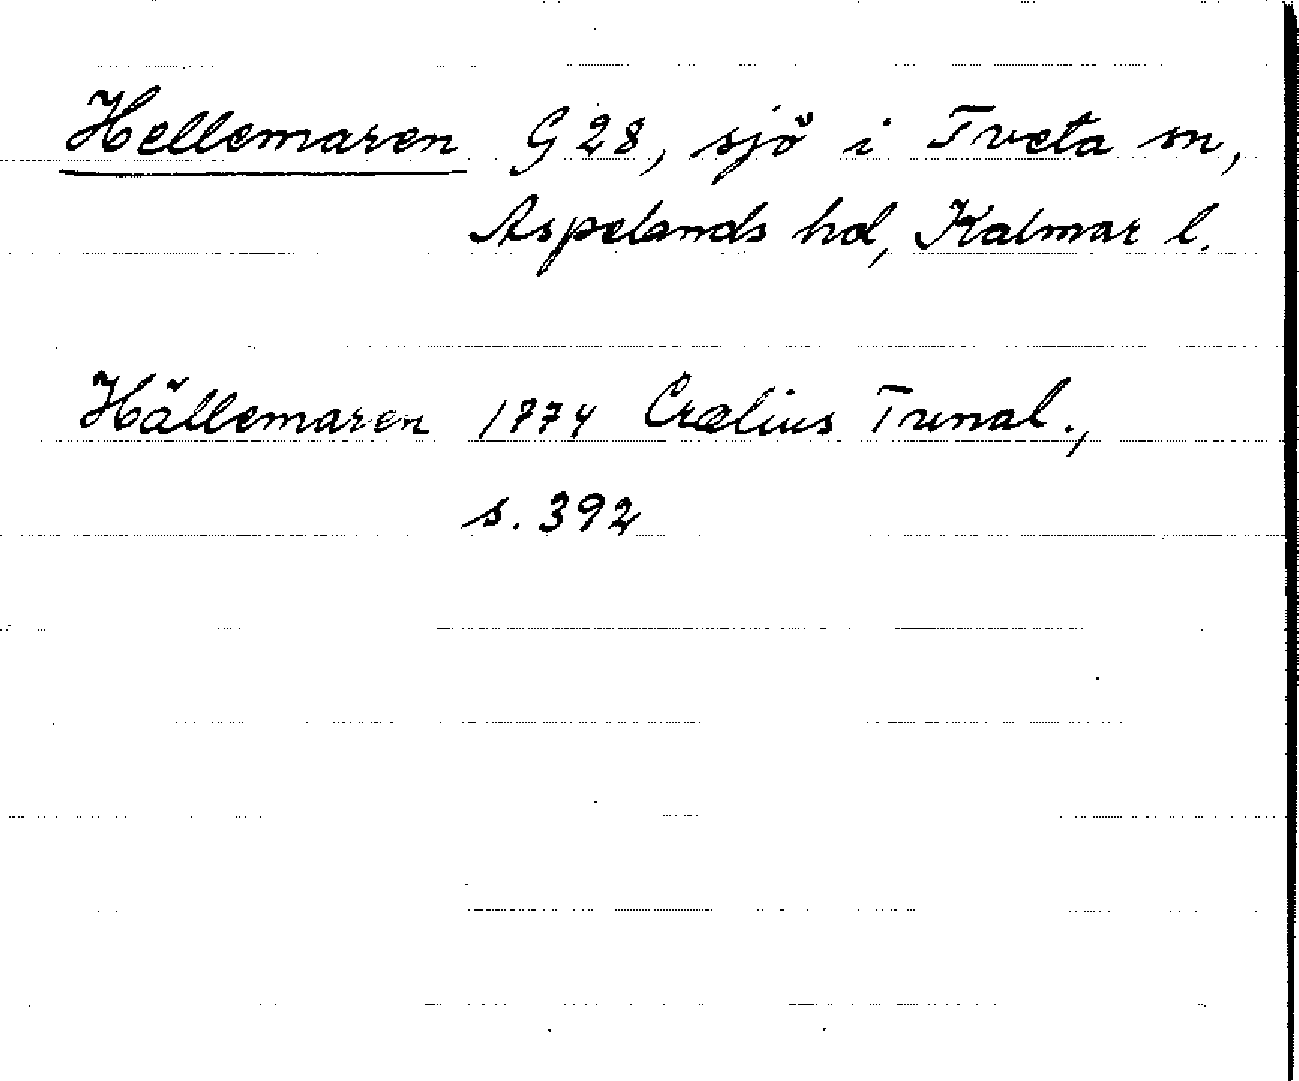 Hellemaren G 28, sjö i Tveta sn,
Aspelands hd, Kalmar l.
Hällemaren 1774 Crælius Tunal.,
s. 392